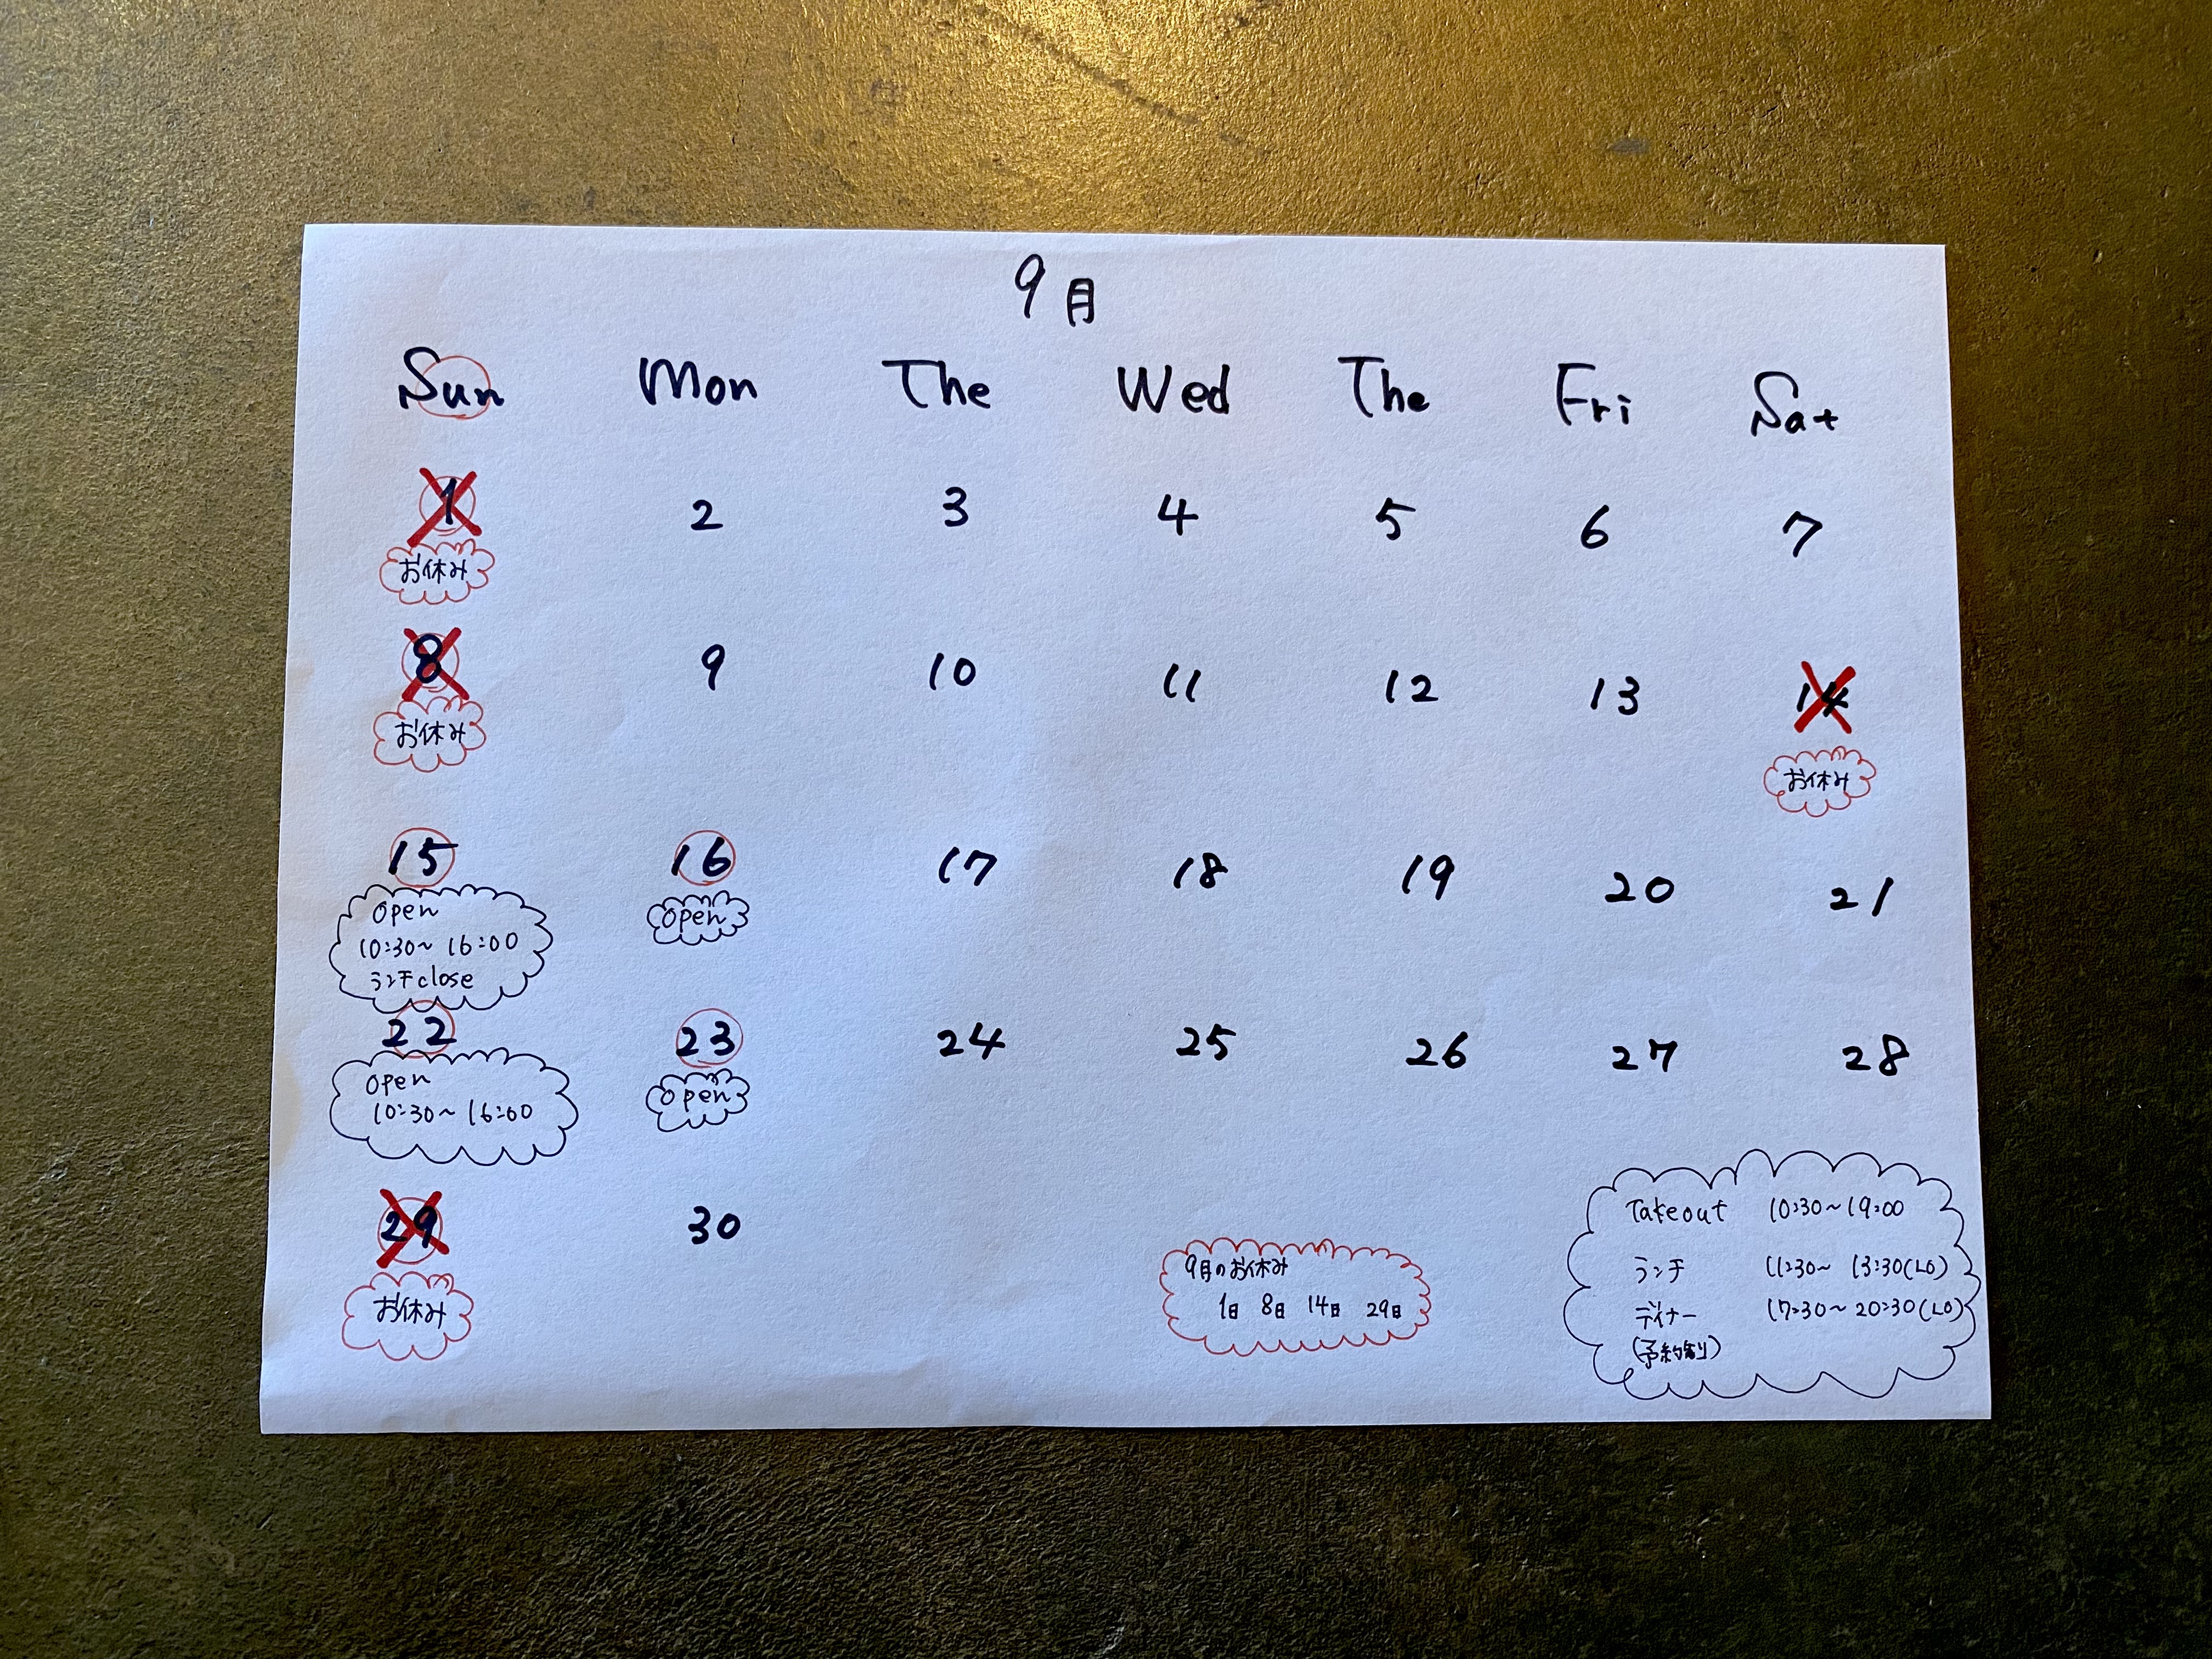 9月
Sun Mon The Wed The Fri Sat
1 2 3 4 5 6 7
お休み
8 9 10 11 12 13 14
お休み お休み
15 16 17 18 19 20 21
Open Open
10:30~ 16:00
ランチclose
22 23 24 25 26 27 28
Open Open
10:30~ 16:00
29 30
お休み
9月のお休み
1日 8日 14日 29日
Takeout 10:30~19:00
ランチ 11:30~ 13:30(LO)
ディナー 17:30~20:30(LO)
(予約制)